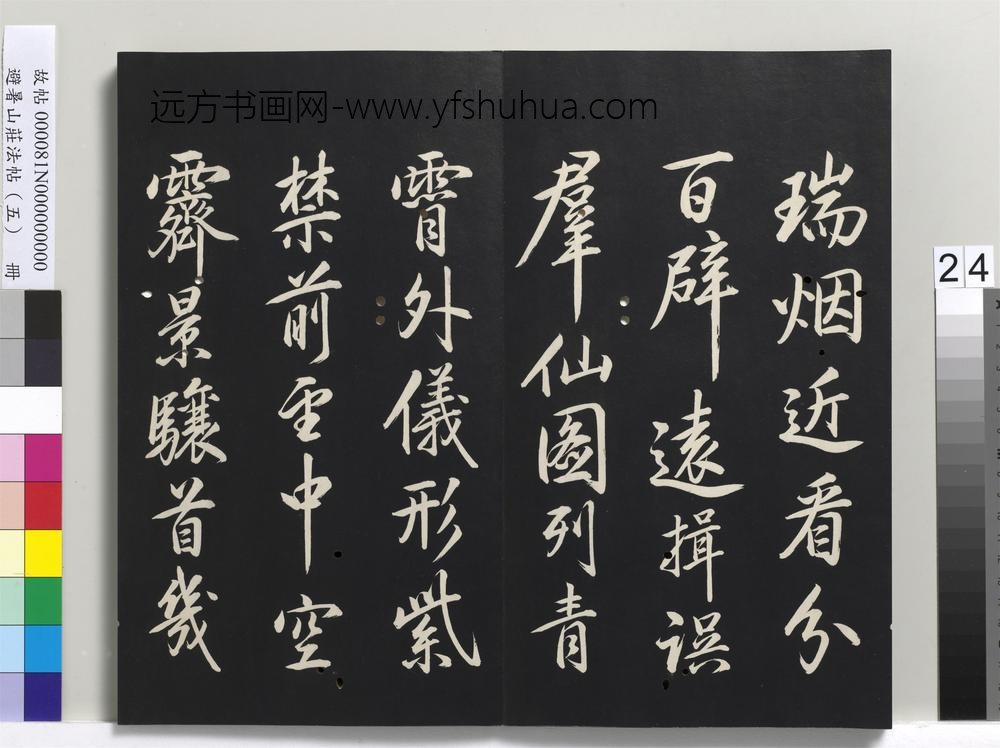 远方书画网-www.yfshuhua.com
瑞烟近看分
百辟遠揖誤
羣仙圖列青
霄外儀形紫
禁前雲中空
霽景驤首幾
故帖 000081N000000000
避暑山莊法帖(五) 冊
24